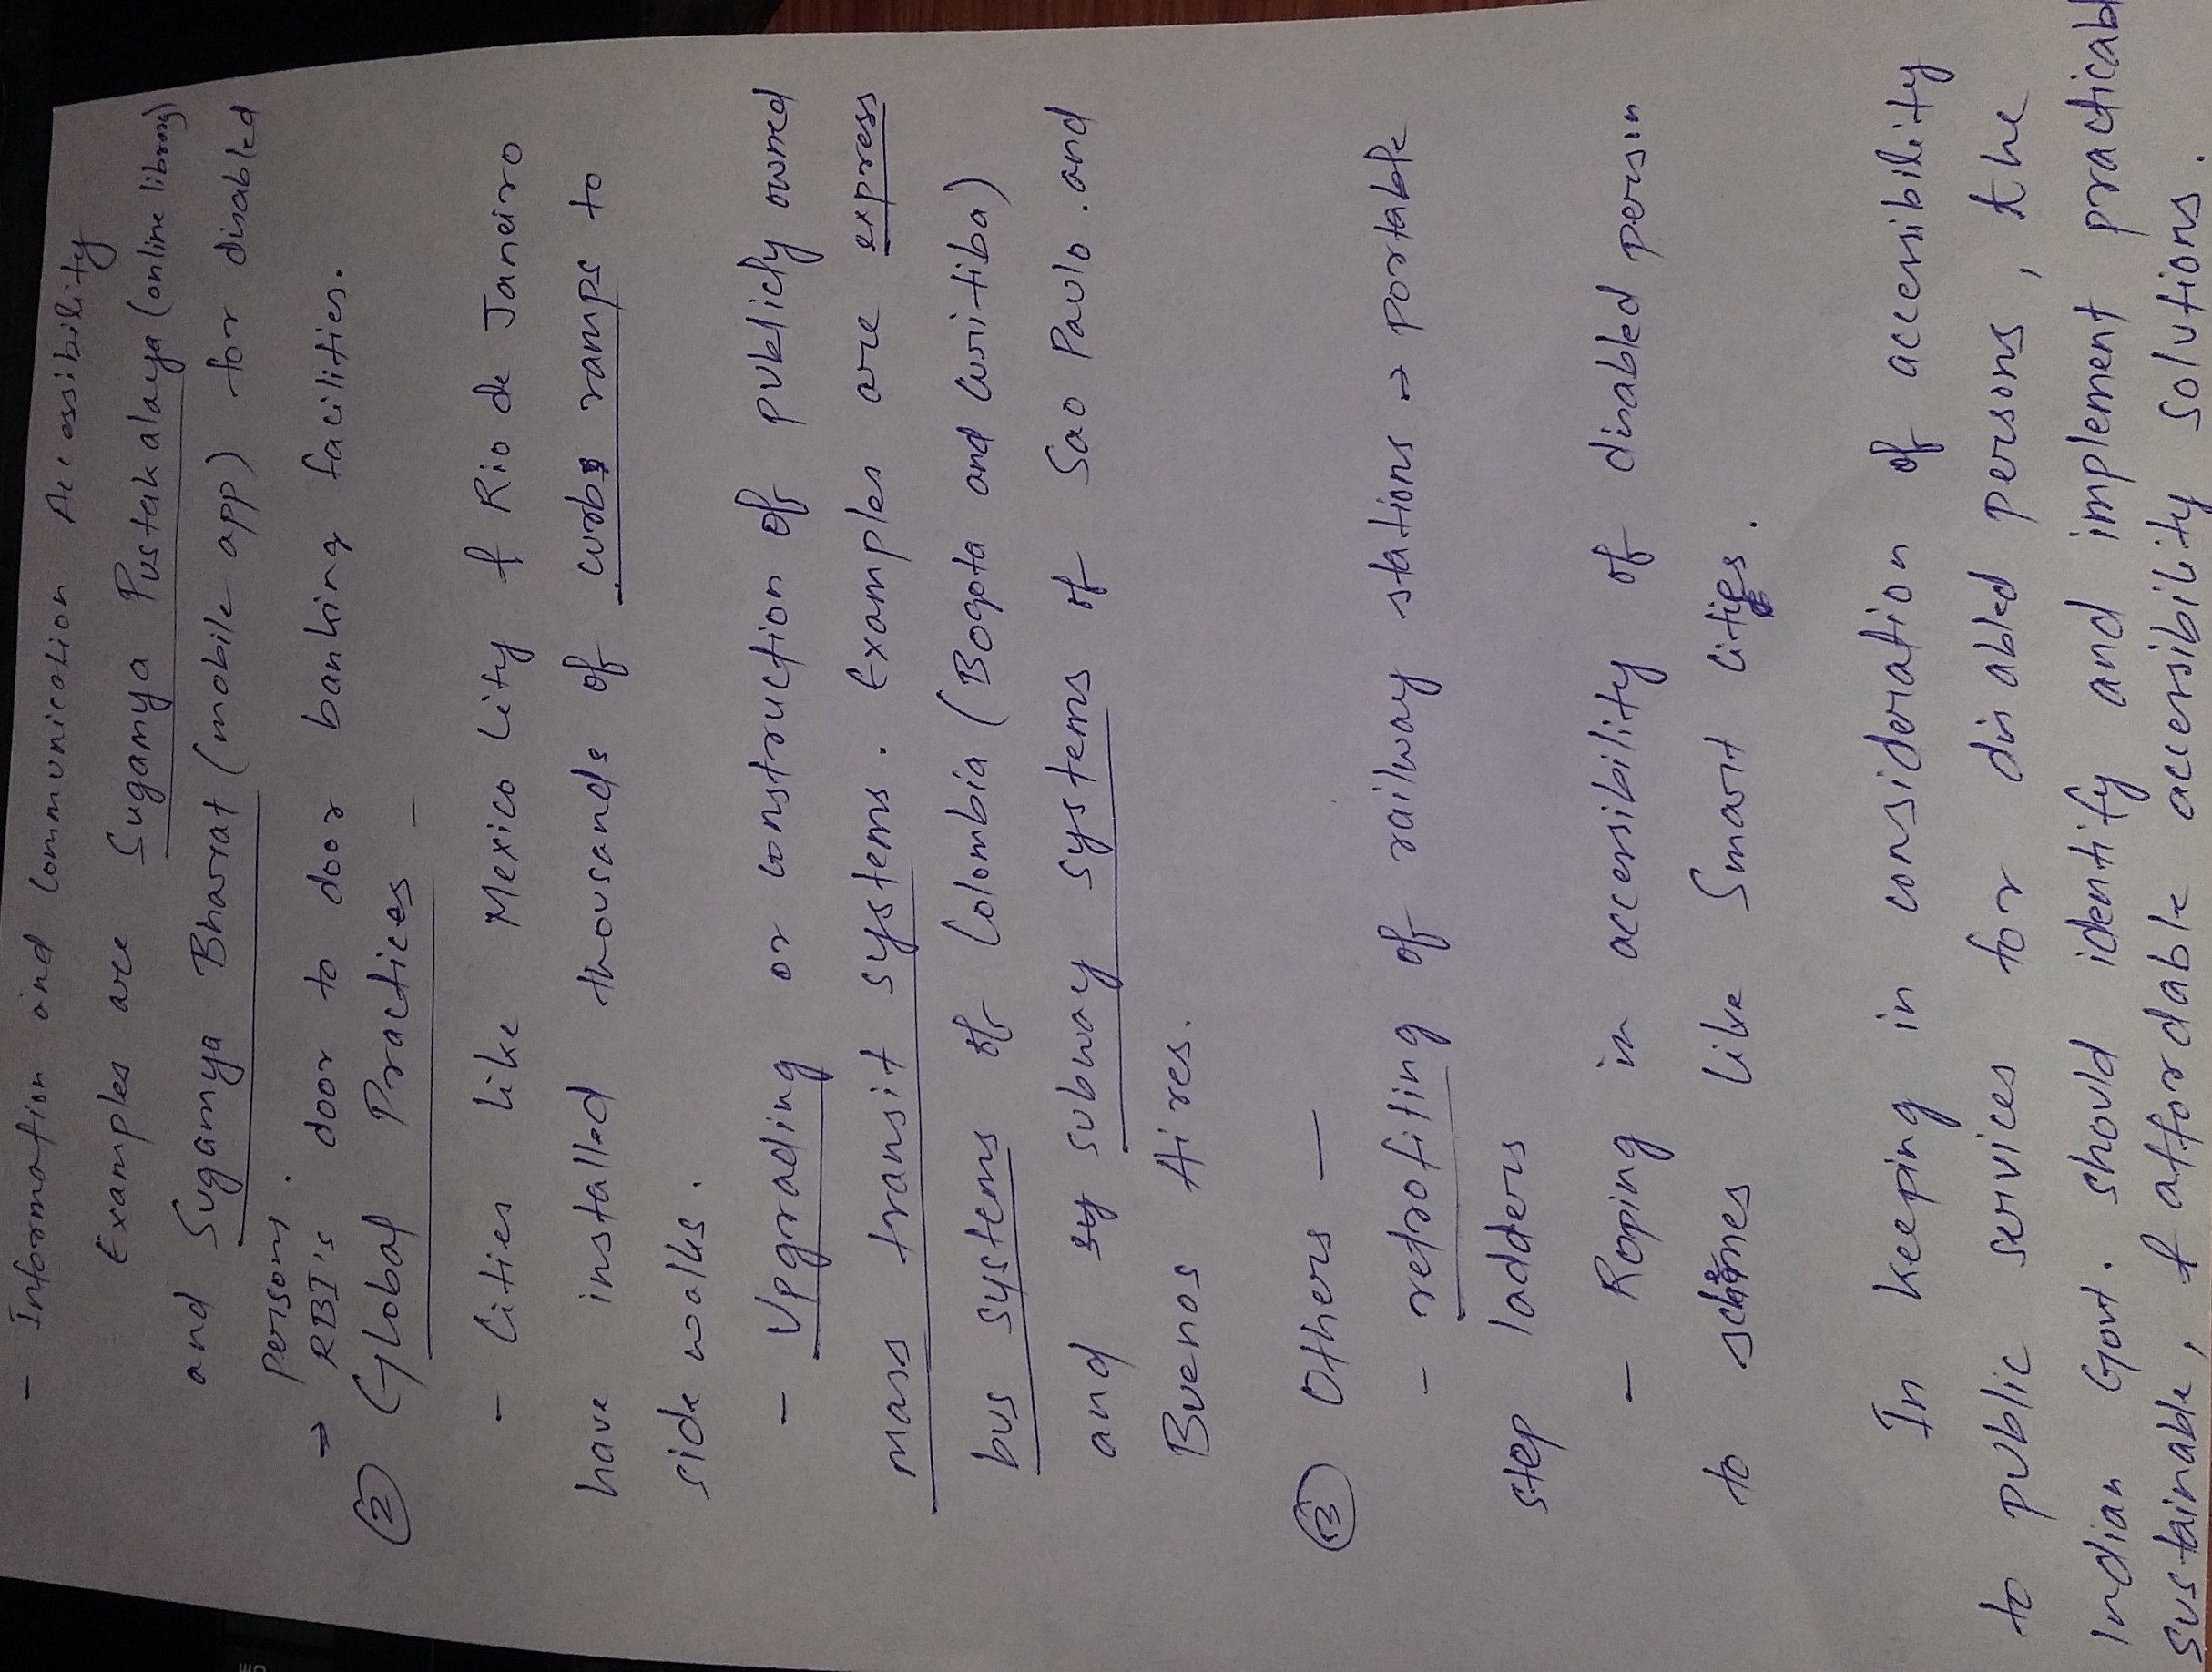 - Information and Communication Accessibility
Examples are Sugamya Pustakalaya (online library)
and Sugamya Bharat (mobile app) for disabled
persons.
→ RBI's door to door banking facilities.
② Global Practices -
- Cities like Mexico City & Rio de Janeiro
have installed thousands of curbs ramps to
side walks.
- Upgrading or construction of publicly owned
mass transit systems. Examples are express
bus systems of Colombia (Bogota and Curitiba)
and sy subway systems of Sao Paulo. and
Buenos Aires.
③ Others -
- retrofiting of railway stations → portable
step ladders
- Roping in accessibility of disabled person
to schemes like Smart Cities.
In keeping in consideration of accessibility
to public services for disabled persons, the
Indian Govt. should identify and implement practicabl
sustainable, & affordable accessibility solutions.